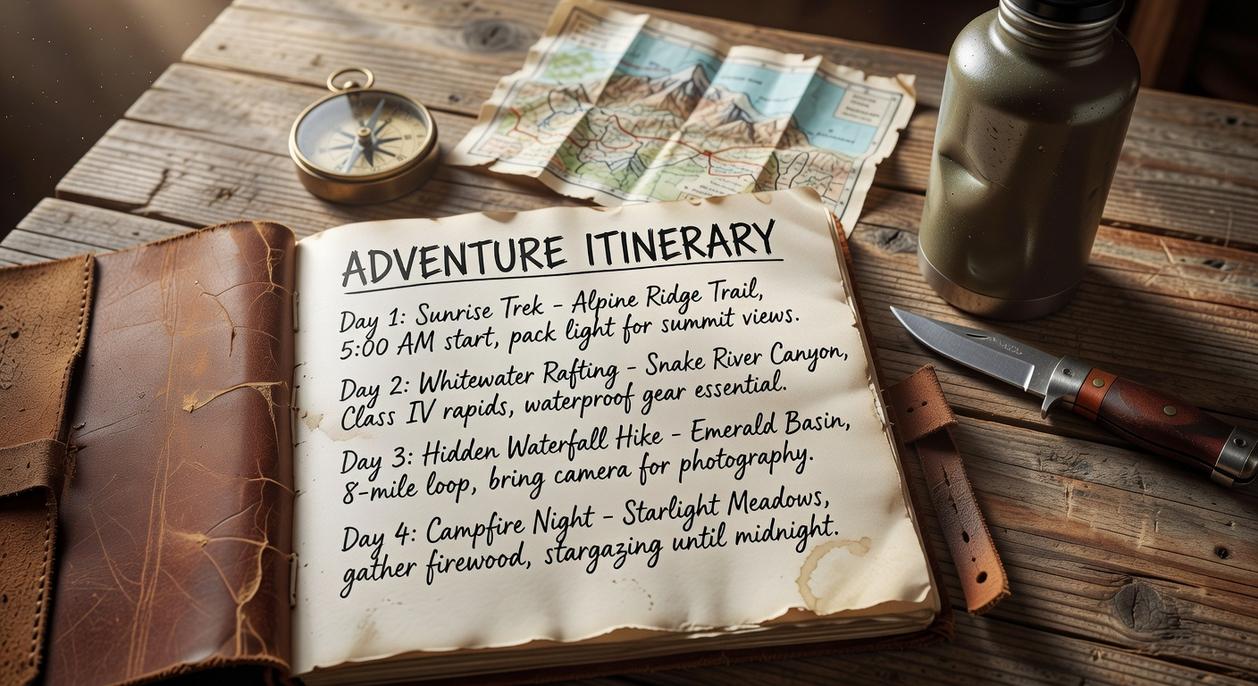 ADVENTURE ITINERARY
Day 1: Sunrise Trek - Alpine Ridge Trail,
5:00 AM start, pack light for summit views.
Day 2: Whitewater Rafting - Snake River Canyon,
Class IV rapids, waterproof gear essential.
Day 3: Hidden Waterfall Hike - Emerald Basin,
8-mile loop, bring camera for photography.
Day 4: Campfire Night - Starlight Meadows,
gather firewood, stargazing until midnight.